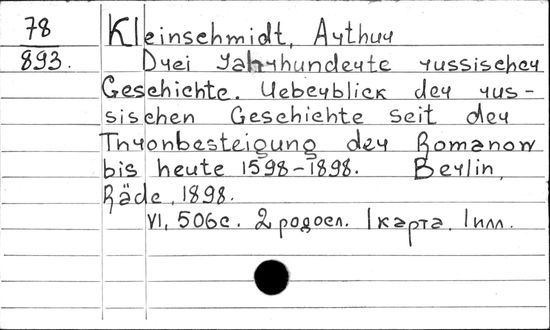 78
893.
Kleinschmidt, Arthur
Drei Jahrhunderte russischer
Geschichte. Ueberblick der rus-
sischen Geschichte seit der
Thronbesteigung der Romanow
bis heute 1598-1898. Berlin,
Räde, 1898.
VI, 506 с. 2 родосл. 1 карта. 1 илл.